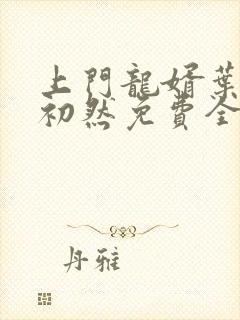 上門龍婿葉
初然免費全
丹雅